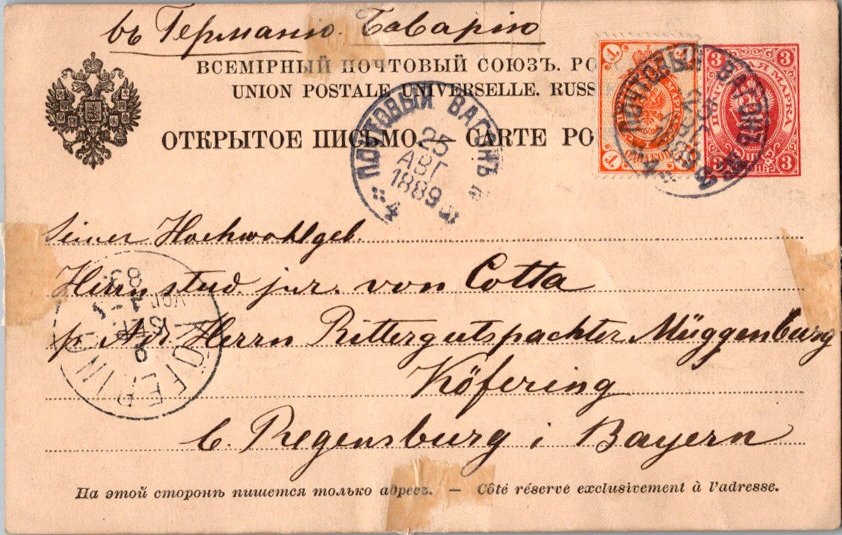 въ Германію. Баварію
ВСЕМІРНЫЙ ПОЧТОВЫЙ СОЮЗЪ. РО
UNION POSTALE UNIVERSELLE. RUSS
ОТКРЫТОЕ ПИСЬМО. — CARTE PO
ПОЧТОВЫЙ ВАГОНЪ
25
АВГ
1889
4
ПОЧТОВЫЙ ВАГОНЪ
1
1
3
3
3
3
МАРКА
Seiner Hochwohlgeb.
Herrn stud. jur. von Cotta
p. Adr Herrn Rittergutspachter Müggenburg
Köfering
b. Regensburg i Bayern
KÖFERING
SEP
На этой сторонѣ пишется только адресъ. — Côté réservé exclusivement à l'adresse.